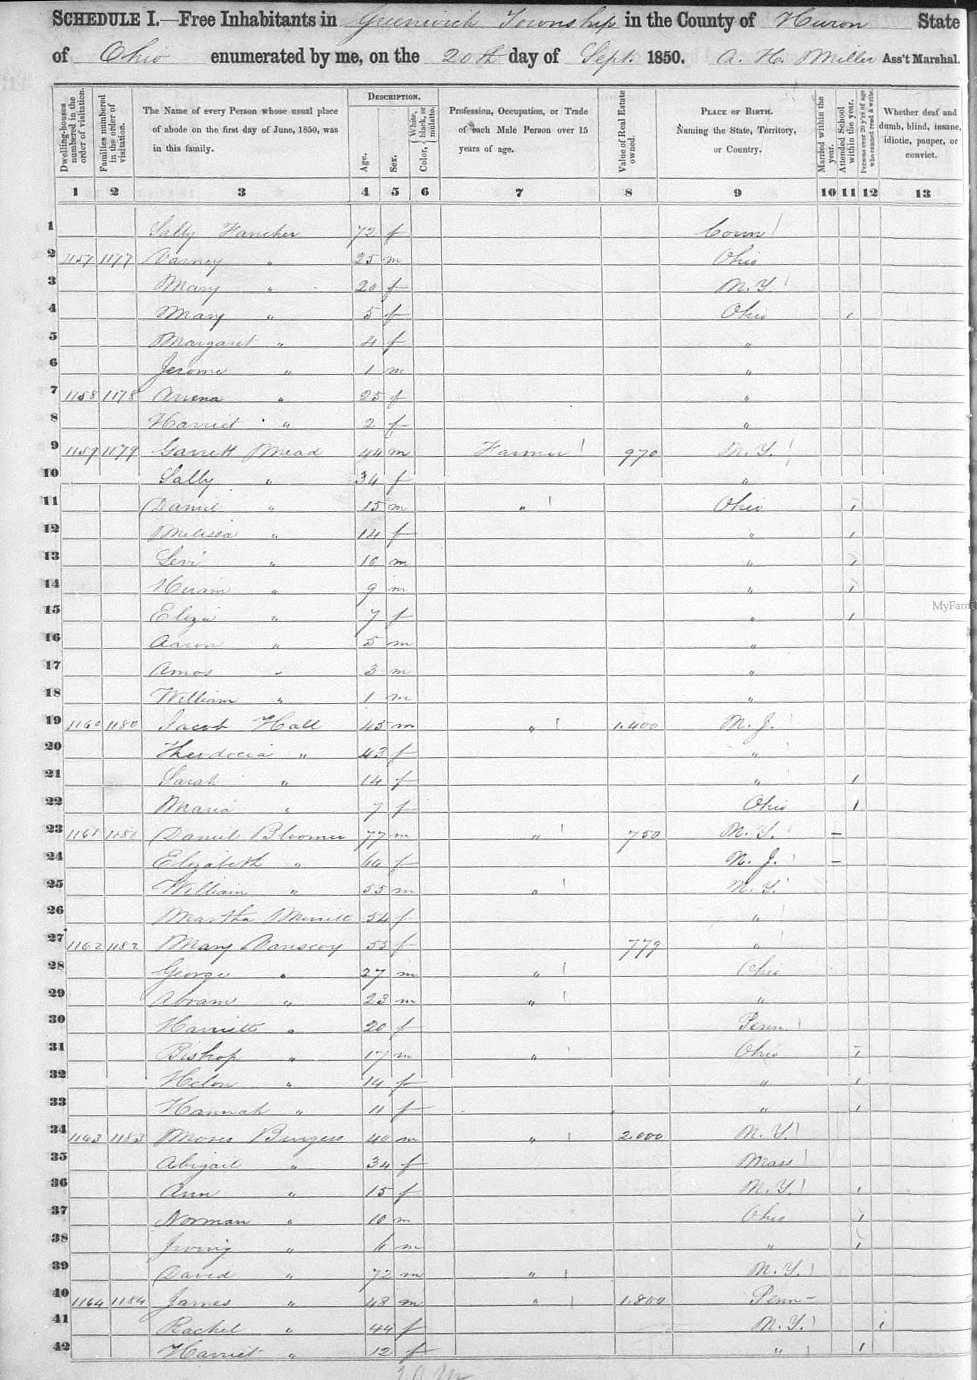 SCHEDULE I.—Free Inhabitants in Greenwich Township in the County of Huron State
of Ohio enumerated by me, on the 20th day of Sept. 1850. A. H. Miller Ass't Marshal.
Dwelling-houses numbered in the order of visitation. Families numbered in the order of visitation. The Name of every Person whose usual place of abode on the first day of June, 1850, was in this family. DESCRIPTION. Age. Sex. Color, { White, black, or mulatto. Profession, Occupation, or Trade of each Male Person over 15 years of age. Value of Real Estate owned. PLACE OF BIRTH. Naming the State, Territory, or Country. Married within the year. Attended School within the year. Persons over 20 y'rs of age who cannot read & write. Whether deaf and dumb, blind, insane, idiotic, pauper, or convict.
1 2 3 4 5 6 7 8 9 10 11 12 13
1 Sally Fancher 72 f Conn
2 1157 1177 Varney " 25 m Ohio
3 Mary " 20 f N.Y.
4 Mary " 5 f Ohio 1
5 Margaret " 4 f "
6 Jerome " 1 m "
7 1158 1178 " 25 f "
8 Harriet " 2 f "
9 1159 1179 Garrett Mead 44 m Farmer 970 N.Y.
10 Sally " 34 f "
11 Daniel " 15 m " Ohio 1
12 Melissa " 14 f " 1
13 Levi " 10 m " 1
14 Hiram " 9 m " 1
15 Eliza " 7 f " 1
16 Aaron " 5 m "
17 Amos " 3 m "
18 William " 1 m "
19 1160 1180 Jacob Hall 45 m " 1.400 N.J.
20 Theodocia " 43 f "
21 Sarah " 14 f " 1
22 Maria " 7 f Ohio 1
23 1161 1181 Daniel Bloomer 77 m " 750 N.Y. –
24 Elizabeth " f N.J. –
25 William " 55 m " N.Y.
26 Martha Merrill 54 f "
27 1162 1182 Mary Vanscoy 55 f 779 "
28 George " 27 m " Ohio
29 Abram " 23 m " "
30 Harriett " 20 f Penn
31 Bishop " 17 m " Ohio 1
32 Helen " 14 f " 1
33 Hannah " 11 f " 1
34 1163 1183 Moses Burgess 40 m " 2.000 N.Y.
35 Abigail " 34 f Mass
36 Ann " 15 f N.Y. 1
37 Norman " 10 m Ohio 1
38 Irving " 6 m " 1
39 David " 72 m " N.Y.
40 1164 1184 James " 48 m " 1.800 Penn
41 Rachel " 44 f N.Y. 1
42 Harriet " 12 f " 1
MyFam